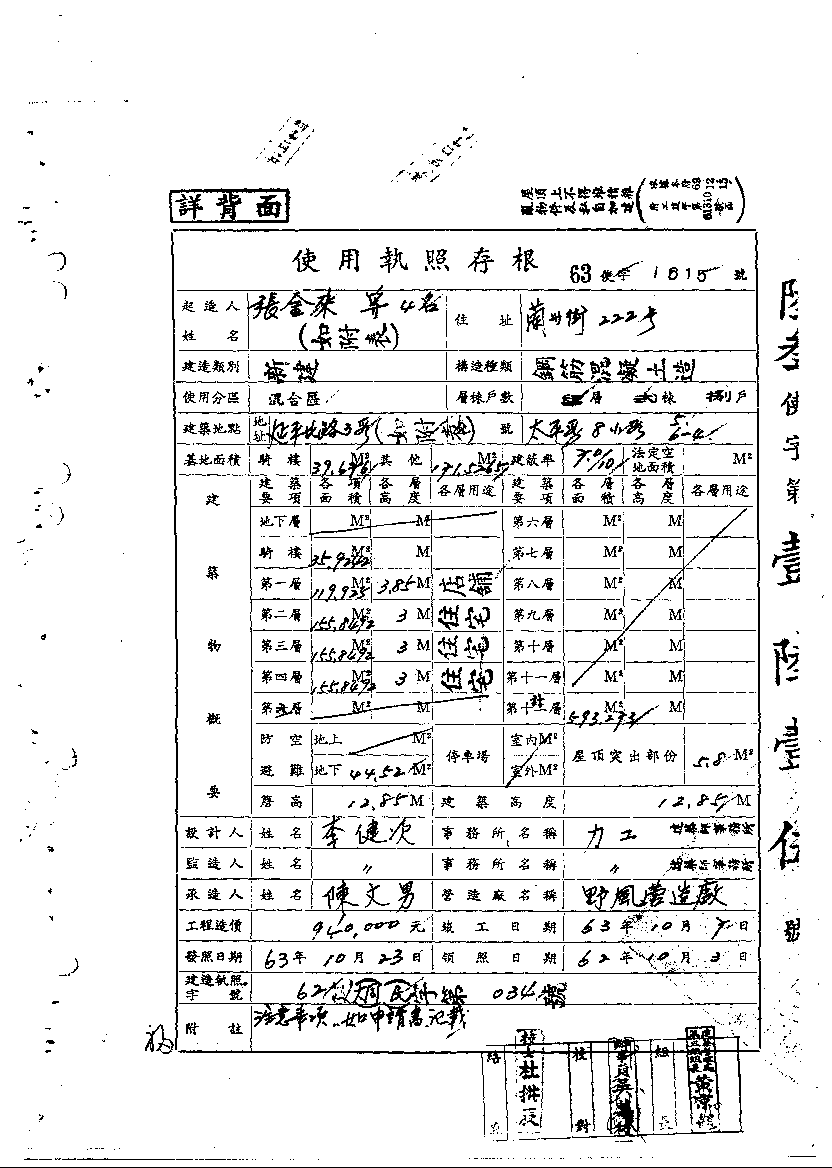 詳背面
屋頂上不得堆積雜
亂物件及私自加建
使用執照存根 63 使字 1615 號
起造人姓名 張金來 等4名 (如附表) 住址 蘭州街222号
建造類別 新建 構造種類 鋼筋混凝土造
使用分區 混合區 層棟戶數 層 棟 捌戶
建築地點 地址 延平北路3段(如附表) 號 太平段8小段
基地面積 騎樓 39.6961 M² 其他 171.5265 建蔽率 7.0/10 法定空地面積 M²
建築物概要
建築要項 各項面積 各層高度 各層用途 建築要項 各層面積 各層高度 各層用途
地下層 M² M 第六層 M² M
騎樓 35.9242 M² M 第七層 M² M
第一層 119.925 M² 3.85 M 店鋪 第八層 M² M
第二層 155.8492 M² 3 M 住宅 第九層 M² M
第三層 155.8492 M² 3 M 住宅 第十層 M² M
第四層 155.8492 M² 3 M 住宅 第十一層 M² M
第五層 M² M 第十 層 593.293 M² M
防空避難 地上 M² 停車場 室內 M² 屋頂突出部份 5.8 M²
地下 44.52 M² 室外 M²
簷高 12.85 M 建築高度 12.85 M
設計人 姓名 李健次 事務所名稱 力工 建築師事務所
監造人 姓名 〃 事務所名稱 〃 建築師事務所
承造人 姓名 陳文男 營造廠名稱 野風營造廠
工程造價 940,000 元 竣工日期 63年10月7日
發照日期 63年10月23日 領照日期 62年10月3日
建造執照字號 62 034號
附註 注意事項如申請書記載
陸叁使字第壹陸壹伍號